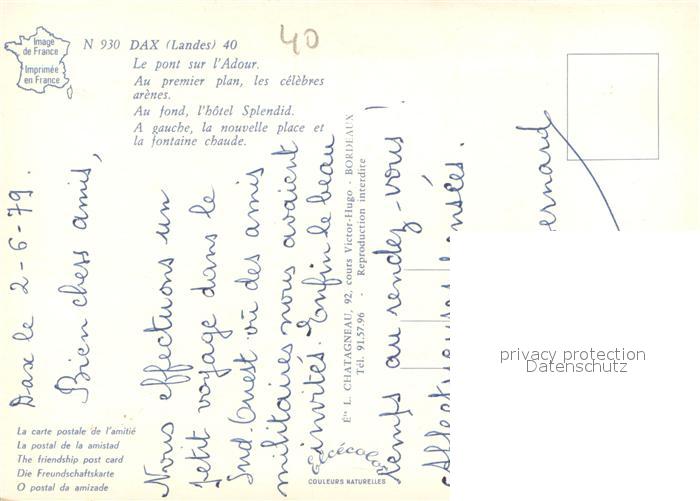 Image
de France
Imprimée
en France
N 930 DAX (Landes) 40
40
Le pont sur l'Adour.
Au premier plan, les célèbres
arènes.
Au fond, l'hôtel Splendid.
A gauche, la nouvelle place et
la fontaine chaude.
Dax le 2-6-79.
Bien chers amis,
Nous effectuons un
petit voyage dans le
Sud-Ouest où des amis
militaires nous avaient
invités. Enfin le beau
temps au rendez-vous !
Affectueuses pensées.
ernard
Éts L. CHATAGNEAU, 92, cours Victor-Hugo - BORDEAUX
Tél. 91.57.96 - Reproduction interdite
COULEURS NATURELLES
La carte postale de l'amitié
La postal de la amistad
The friendship post card
Die Freundschaftskarte
O postal da amizade
privacy protection
Datenschutz